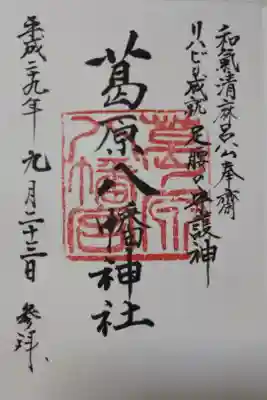 和氣清麻呂公奉齋
リハビリ成就 足腰の守護神
葛原八幡神社
平成二十九年 九月二十三日 参拝